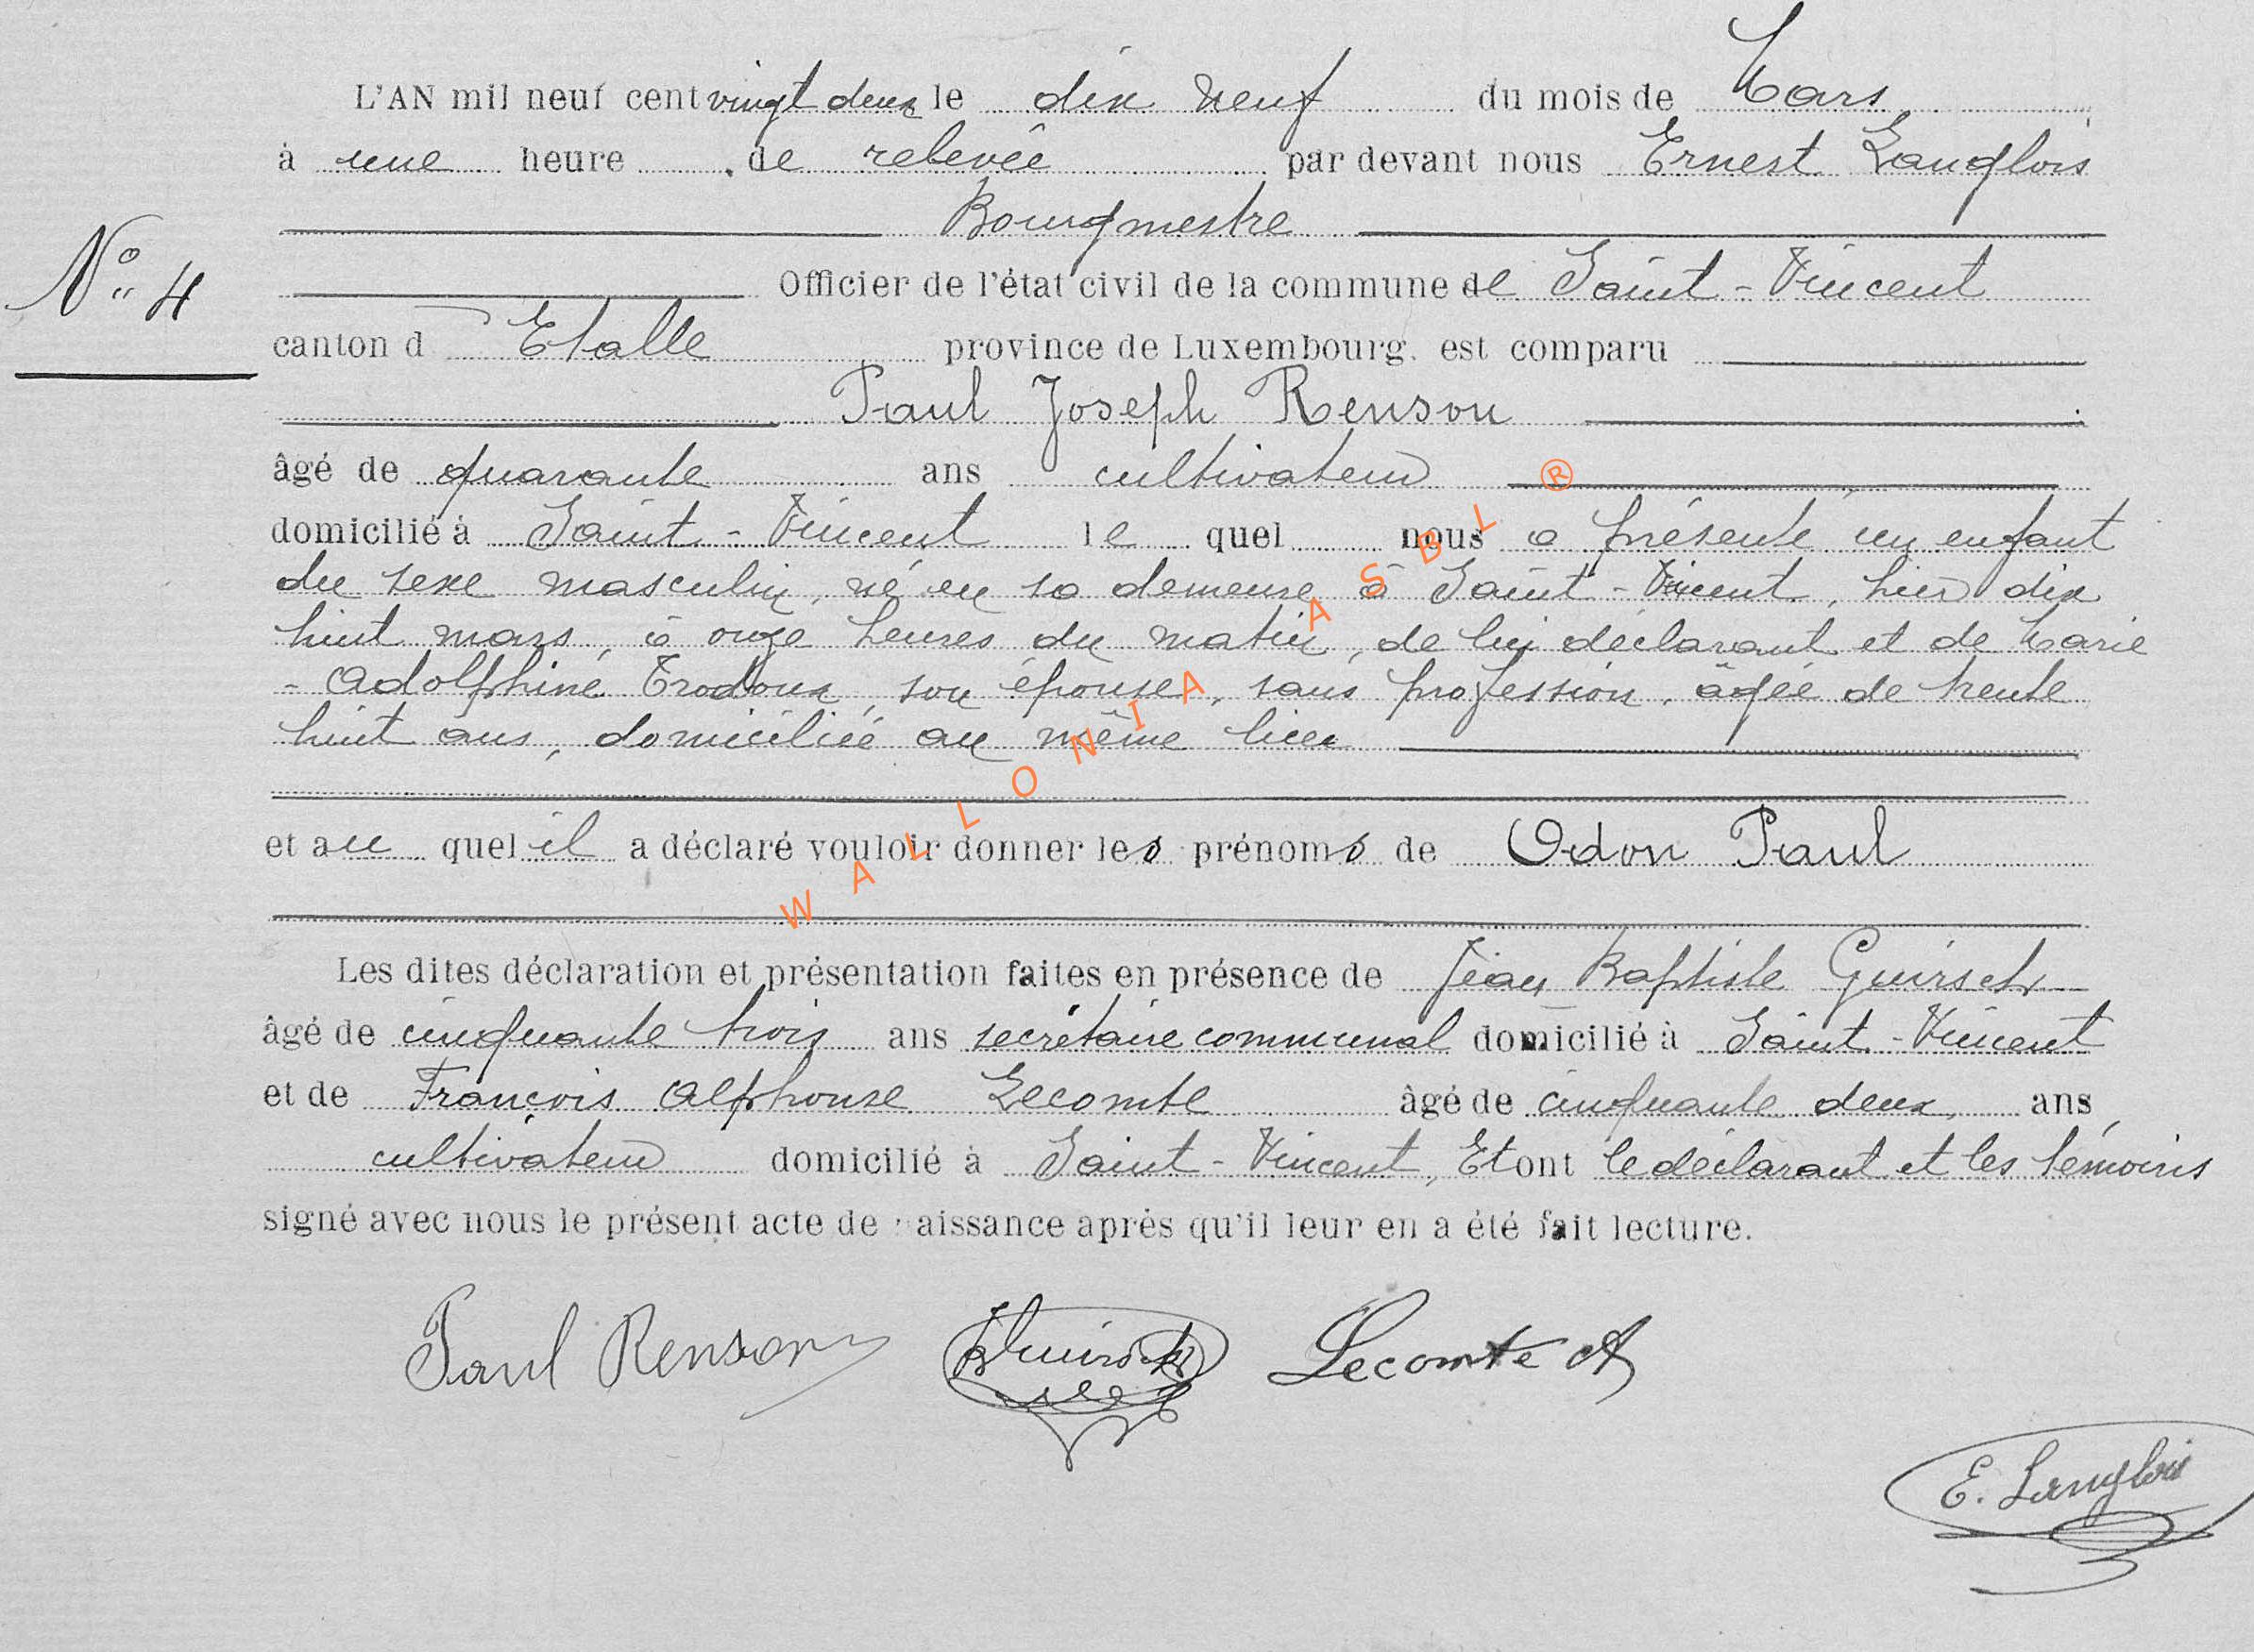 L'AN mil neuf cent vingt deux le dix neuf du mois de Mars
à une heure de relevée par devant nous Ernest Langlois
Bourgmestre
N° 4
Officier de l'état civil de la commune de Saint-Vincent
canton d Etalle province de Luxembourg, est comparu
Paul Joseph Renson
âgé de quarante ans cultivateur
domicilié à Saint-Vincent le quel nous a présenté un enfant
du sexe masculin, né en sa demeure à Saint-Vincent, hier dix
huit mars, à onze heures du matin, de lui déclarant et de Marie
- Adolphine Trodoux, son épouse, sans profession, âgée de trente
huit ans, domiciliée au même lieu
et au quel il a déclaré vouloir donner les prénoms de Odon Paul
Les dites déclaration et présentation faites en présence de Jean Baptiste Guirsch
âgé de cinquante trois ans secrétaire communal domicilié à Saint-Vincent
et de François Alphonse Lecomte âgé de cinquante deux ans,
cultivateur domicilié à Saint-Vincent, Et ont le déclarant et les témoins
signé avec nous le présent acte de naissance après qu'il leur en a été fait lecture.
Paul Renson JBGuirsch Lecomte A
E. Langlois
WALLONIA ASBL ®